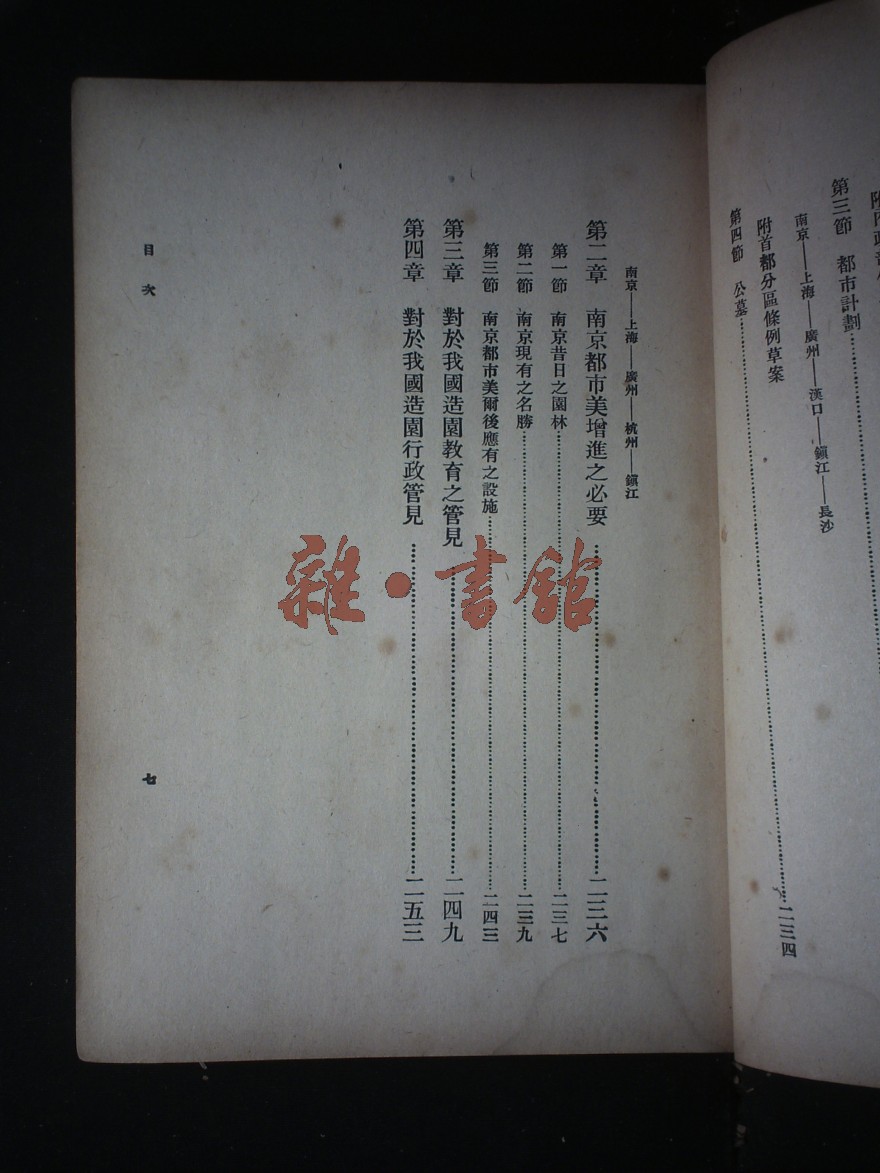 第三節　都市計劃
南京——上海——廣州——漢口——鎭江——長沙
附首都分區條例草案
第四節　公墓……二三四
南京——上海——廣州——杭州——鎭江
第二章　南京都市美增進之必要……二三六
第一節　南京昔日之園林……二三七
第二節　南京現有之名勝……二三九
第三節　南京都市美爾後應有之設施……二四三
第三章　對於我國造園教育之管見……二四九
第四章　對於我國造園行政管見……二五三
目次
七
雜·書館